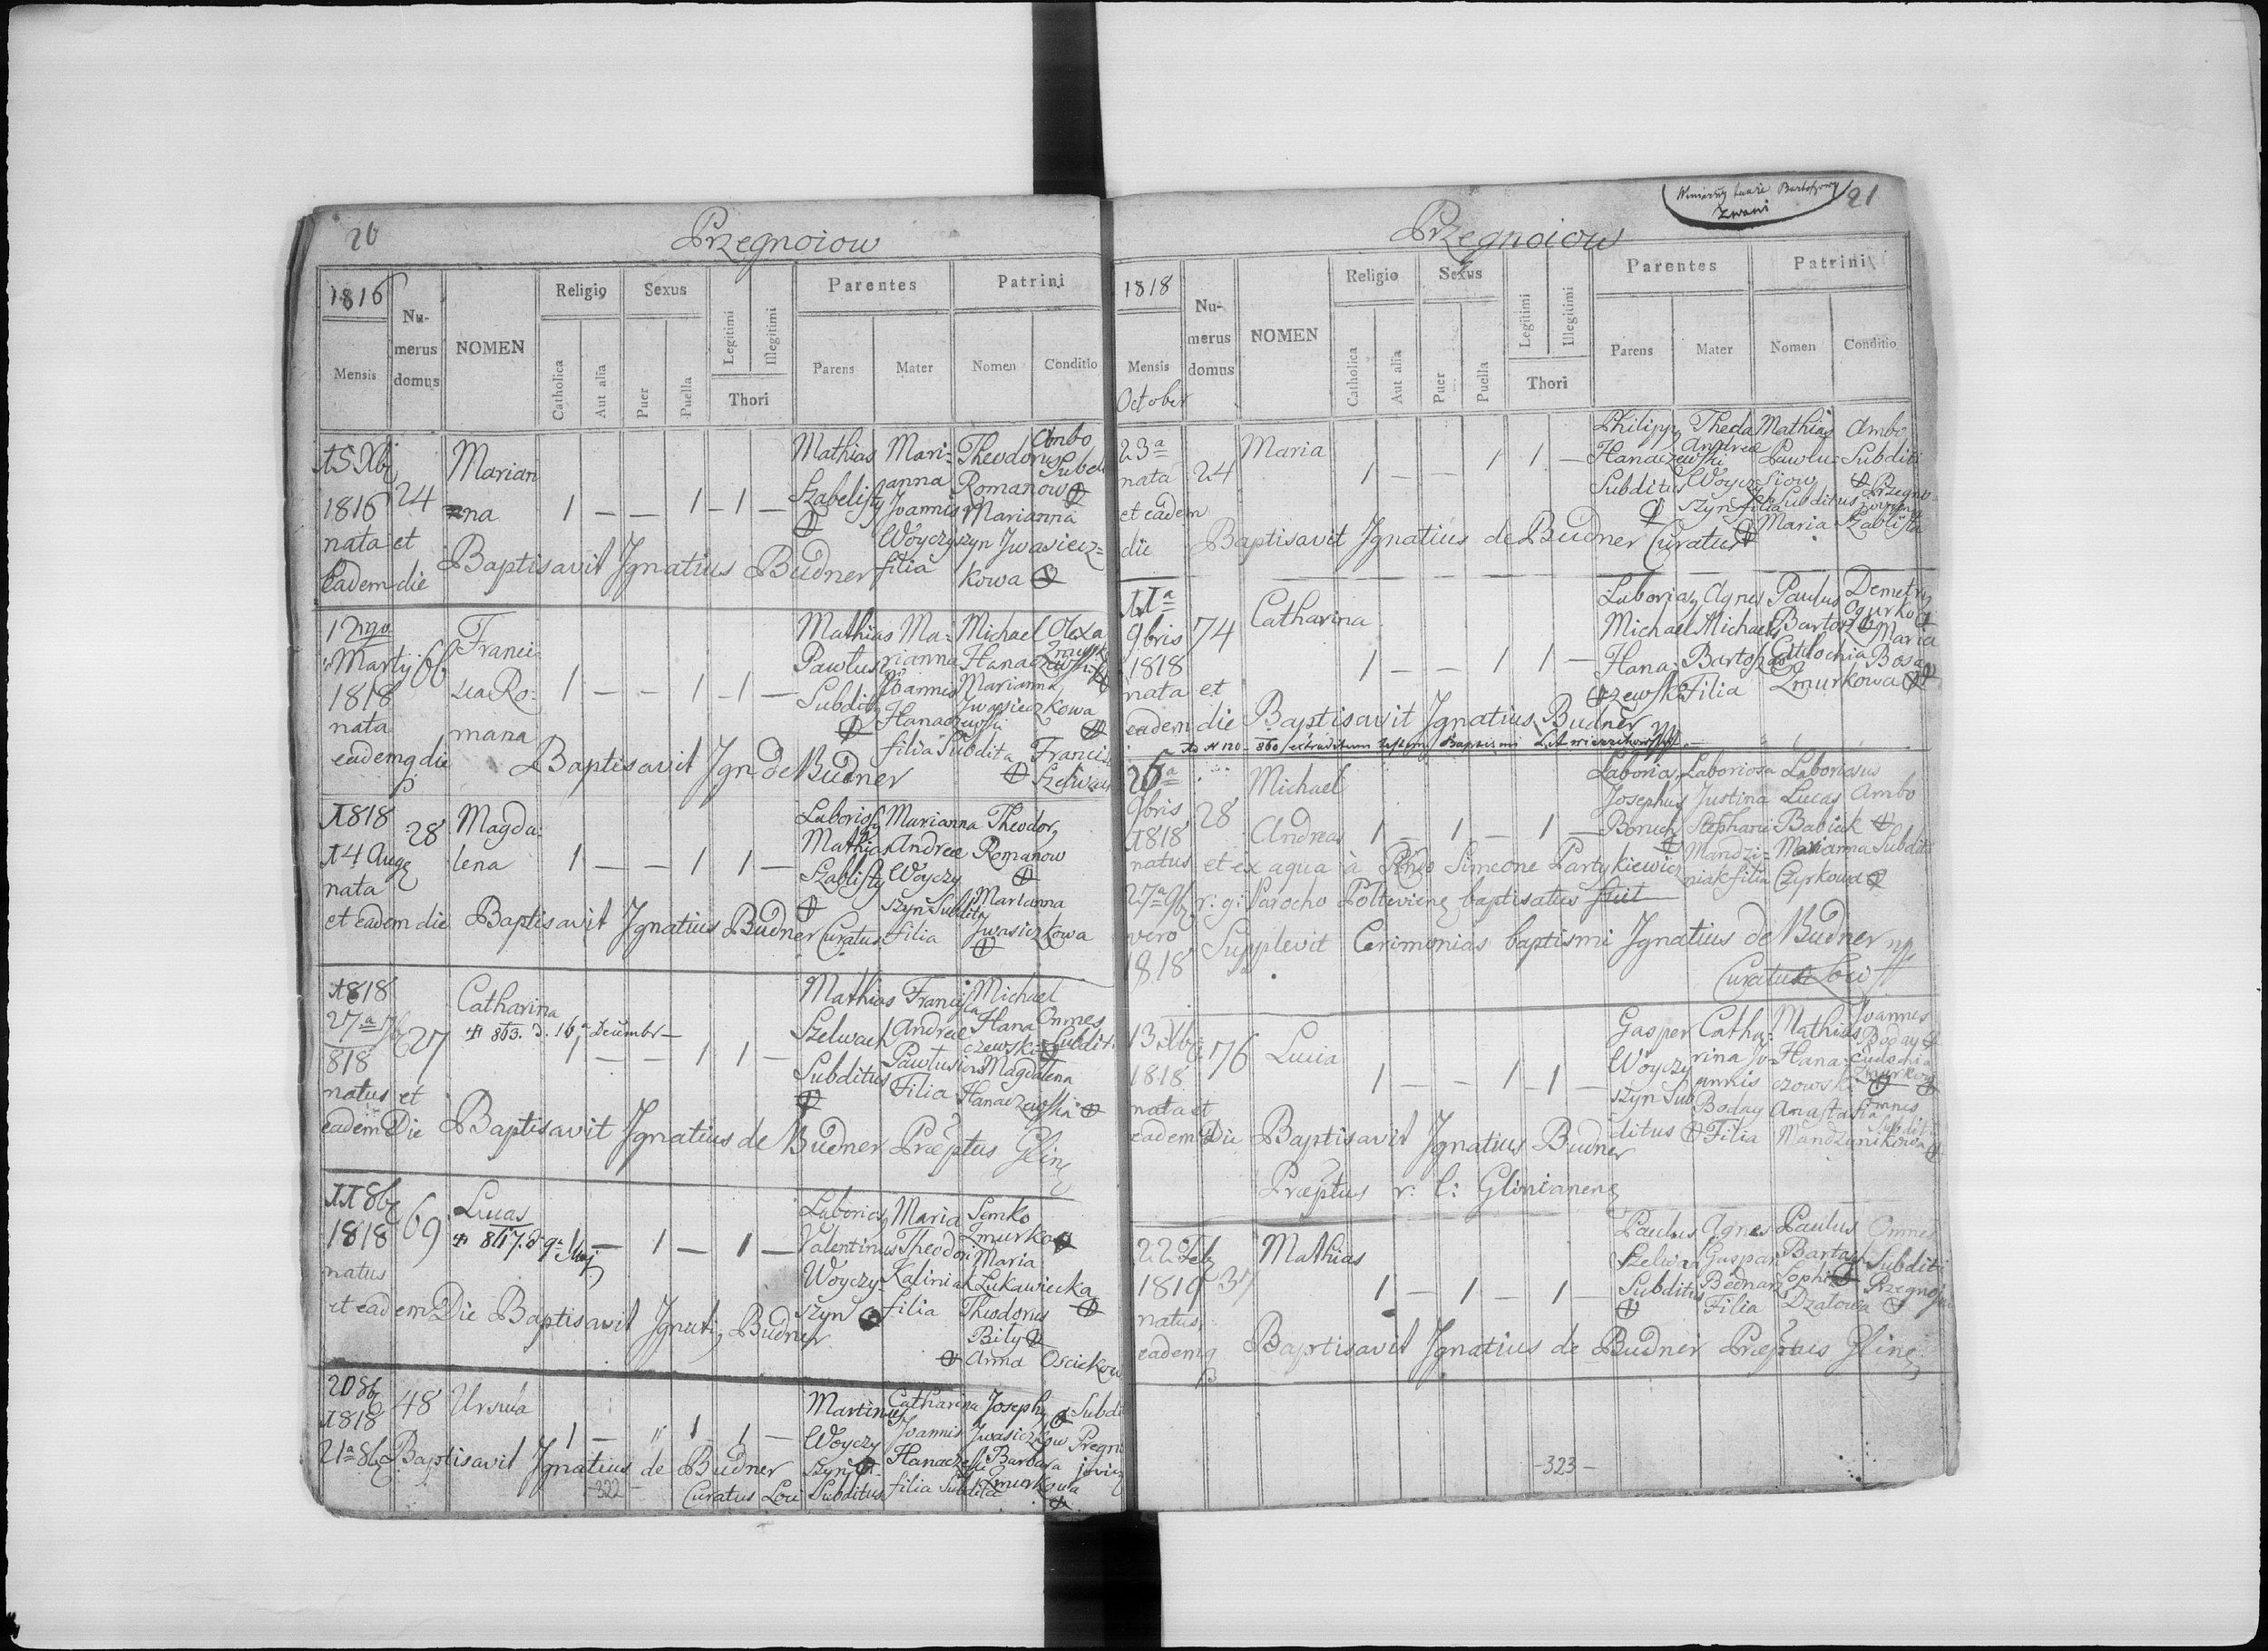 20
Przegnoiow
1816
Mensis
Nu-
merus
domus
NOMEN
Religio
Catholica
Aut alia
Sexus
Puer
Puella
Legitimi
Illegitimi
Thori
Parentes
Parens
Mater
Patrini
Nomen
Conditio
15 Xbr
1816
nata et
Eadem die
24
Marian
na
1 — — 1 — 1 —
Mathias
Szabelisty
Mari-
anna
Joannis
Woyczyszyn
filia
Theodorus
Romanow
Marianna
Jwasiecz-
kowa
Ambo
Subd
Baptisavit Ignatius Budner
12
Martij
1818
nata
eademq die
66
Franci-
sca Ro-
mana
1 — — 1 — 1 —
Mathias
Pawlus
Subdit
Ma-
rianna
Joannis
Hanaczewski
filia Subdita
Michael
Hanaczewski
Marianna
Jwasieczkowa
Olexa
Zmurko
Francis
Szelwach
Baptisavit Ign de Budner
1818
14 Aug
nata
et eadem die
28
Magda-
lena
1 — — 1 1 —
Laborios
Mathias
Szablisty
Marianna
Andreae
Woyczy
szyn Subdity
filia
Theodor
Romanow
Marianna
Jwasiczkowa
Baptisavit Ignatius Budner Curatus
1818
27a 7b
818
natus et
eadem Die
27
Catharina
863. d. 16a Decembr
1 — — 1 1 —
Mathias
Szelwach
Subditus
Francisca
Andreae
Pawlusiow
Filia
Michael
Hana
czewski
Magdalena
Hanaczewska
Omnes
Subditi
Baptisavit Ignatius de Budner Præptus Glin
11 8b
1818
natus
et eadem Die
69
Lucas
847. d 9a Maj
— 1 — 1 —
Laborios
Valentinus
Woyczy-
szyn
Maria
Theodori
Kaliniak
filia
Semko
Zmurko
Maria
Lukawiecka
Theodorus
Bily
Anna Oscickow
Baptisavit Ignati Budner
20 8b
1818
21a 8b
48
Ursula
1 — " 1 1 —
Martinus
Woyczy
szyn
Subditus
Catharina
Joannis
Hanaczews
filia Subdita
Joseph
Jwasiczkow
Barbara
Zmurkowa
Subdi
Pregno
Baptisavit Ignatius de Budner
Curatus Loci
-322-
Bartoszowy
zwani
21
Przegnoiow
1818
Mensis
October
Nu-
merus
domus
NOMEN
Religio
Catholica
Aut alia
Sexus
Puer
Puella
Legitimi
Illegitimi
Thori
Parentes
Parens
Mater
Patrini
Nomen
Conditio
23a
nata
et eadem
die
24
Maria
1 — — 1 1 —
Philipp
Hanaczewski
Subditus
Theda
Andreae
Woyczy
szyn filia
Mathias
Pawlu-
siow
Subditus
Maria
Ambo
Subditi
Przegno
Szablista
Baptisavit Ignatius de Budner Curatus
11a
9bris
1818
nata et
eadem die
74
Catharina
1 — — 1 1 —
Laborias
Michael
Hana-
czewski
Agnes
Michaelis
Bartosz
Filia
Paulus
Bartosz
Eudochia
Zmurkowa
Demetry
Ogurko
Maria
Bosa
Baptisavit Ignatius Budner
Ad N 120 - 860 extraditum Baptismi
26a
9bris
1818
natus
27a 9b
vero
1818
28
Michael
Andreas
1 — 1 — 1 —
Laborios
Josephus
Boruch
Laboriosa
Justina
Stephani
Mandzi-
niak filia
Laboriosus
Lucas
Babiak
Marianna
Czyrkowa
Ambo
Subditi
et ex aqua à Simeone Partykiewicz
r: g: Parocho Poltevien baptisatus fuit
Supplevit Cerimonias baptismi Ignatius de Budner mp
Curatus Loci
13 Xb
1818
nata et
eadem Die
76
Lucia
1 — — 1 1 —
Gasper
Woyczy
szyn Sub
ditus
Catha-
rina Jo-
annis
Boday
Filia
Mathias
Hana-
czowski
Anastasia
Mandzunikowa
Joannes
Boday
Eudochia
Zmurkow
Omnes
Subditi
Baptisavit Ignatius Budner
Præptus r: l: Glinianen
22 Feb
1819
natus
eademq
37
Mathias
1 — 1 — 1 —
Paulus
Szelwa
Subditus
Agnes
Gaspari
Bednarz
Filia
Paulus
Bartosz
Sophia
Dzatowa
Omnes
Subditi
Przegnoj
Baptisavit Ignatius de Budner Præptus Glin
-323-